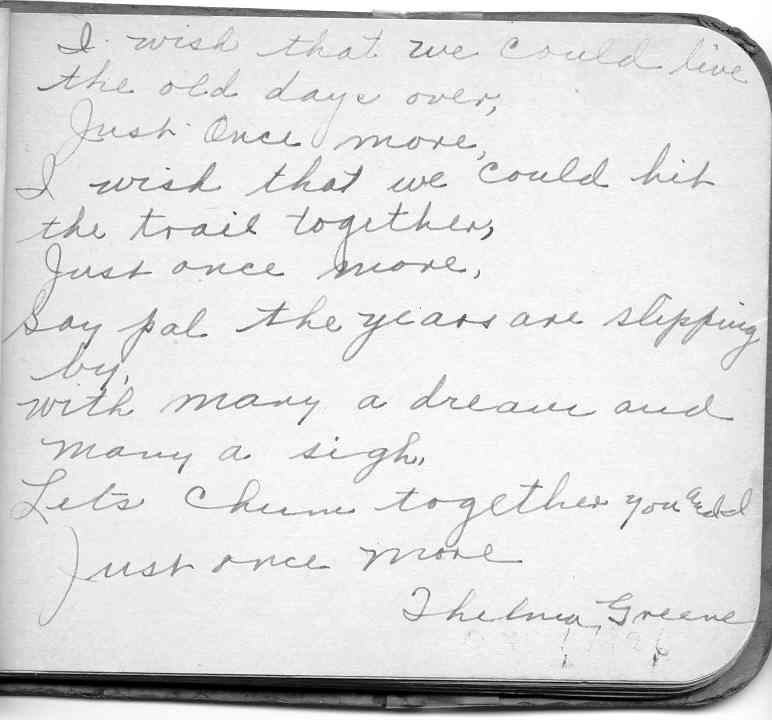 I wish that we could live
the old days over,
Just Once more,
I wish that we could hit
the trail together,
Just once more,
Say pal the years are slipping
by,
with many a dream and
many a sigh,
Lets chum together you and I
Just once more
Thelma Greene